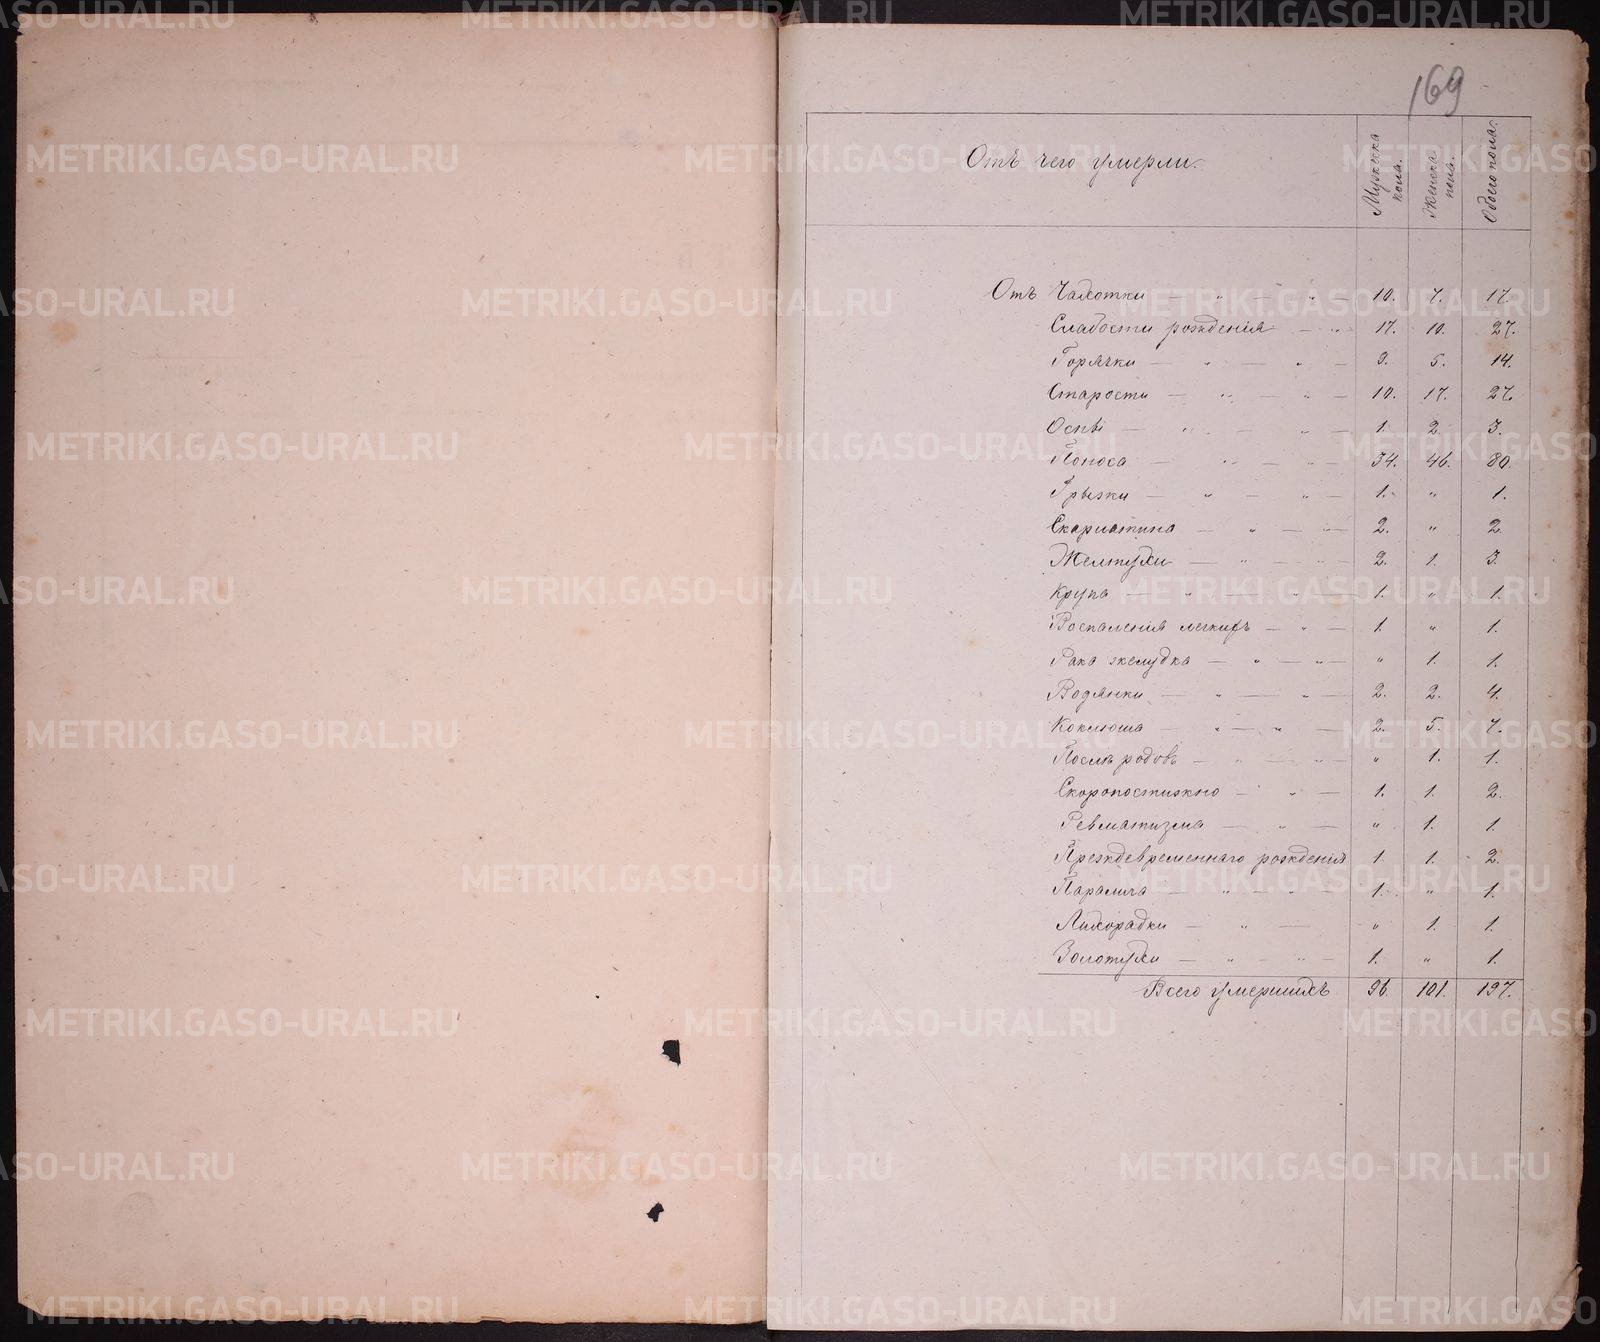 169
Отъ чего умерли.
Мужеска пола.
Женска пола.
Обоего пола.
Отъ Чахотки — „ — „ — 10. 7. 17.
Слабости рожденія — „ 17. 10. 27.
Горячки — „ — „ — 9. 5. 14.
Старости — „ — „ — 10. 17. 27.
Оспы — „ — „ — 1. 2. 3.
Поноса — „ — „ — 34. 46. 80.
Грызжи — „ — „ — 1. „ 1.
Скарлатина — „ — „ — 2. „ 2.
Желтухи — „ — „ — 2. 1. 3.
Крупа — „ — „ — 1. „ 1.
Воспаленія легкихъ — „ — 1. „ 1.
Рака желудка — „ — „ — „ 1. 1.
Водянки — „ — „ — 2. 2. 4.
Коклюша — „ — „ — 2. 5. 7.
Послѣ родовъ — „ — „ — „ 1. 1.
Скоропостижно — „ — 1. 1. 2.
Ревматизма — „ — „ 1. 1.
Преждевременнаго рожденія 1. 1. 2.
Паралича — „ — „ — 1. „ 1.
Лихорадки — „ — „ 1. 1.
Золотухи — „ — „ — 1. „ 1.
Всего умершихъ 96. 101. 197.
METRIKI.GASO-URAL.RU